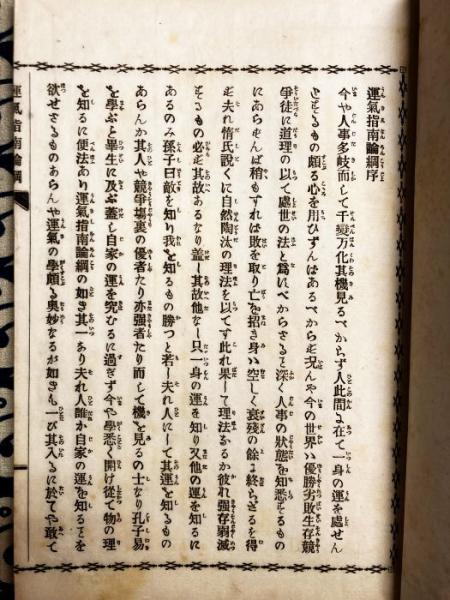 運氣指南論綱序
今や人事多岐而して千變万化其機見るべからず人此間に在て一身の運を處せん
とするもの頗る心を用ひずんばあるべからず况んや今の世界は優勝劣敗生存競
爭徒に道理の以て處世の法と爲にべからざると深く人事の狀態を知悉するもの
にあらずんば稍もすれば敗を取り亡を招き身は空しく衰殘の餘に終らざるを得
ず夫れ惰氏說くに自然陶汰の理法を以てす此れ果して理法なるか彼れ强存弱滅
するもの必ず其故あるなり蓋し其故他なし只一身の運を知り又他の運を知るに
あるのみ孫子曰敵を知り我を知るもの勝つと若し夫れ人にして其運を知るもの
あらんか其人や競爭塲裏の優者たり亦强者たり而して機を見るの士なり孔子易
を學ぶと畢生に及ぶ蓋し自家の運を究むるに過ぎず今や學悉く開け從て物の理
を知るに便法あり運氣指南論綱の如き其一あり夫れ人誰か自家の運を知るとを
欲せざるものあらんや運氣の學頗る奧妙なるが如きも一び其入るに於てや敢て
運氣指南論綱